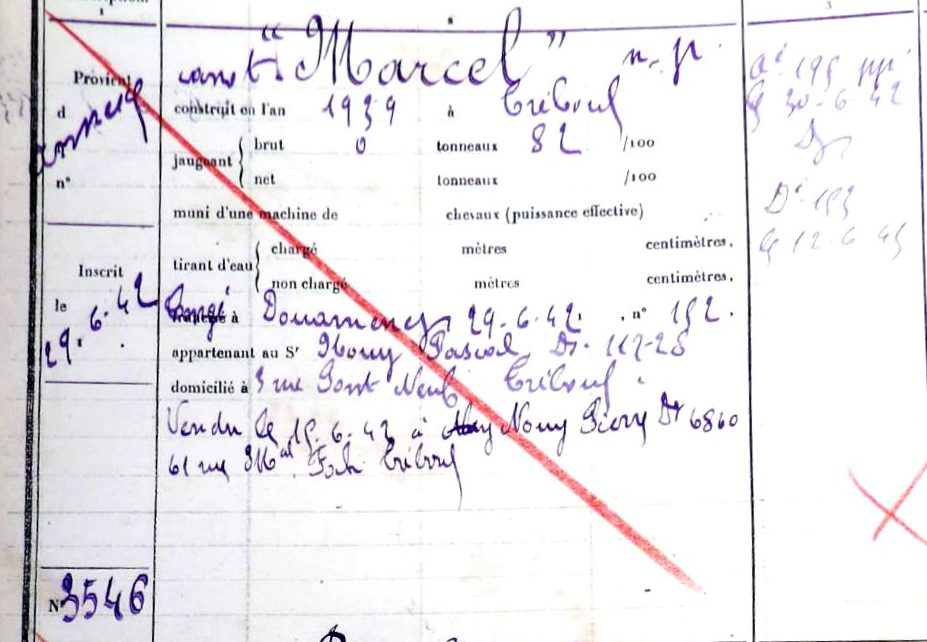 canot "Marcel" n. p.
Provient
d annexe
n°
construit en l'an 1939 à Tréboul
jaugeant { brut 0 tonneaux 82 /100
net tonneaux /100
muni d'une machine de chevaux (puissance effective)
tirant d'eau { chargé mètres centimètres,
non chargé mètres centimètres,
Inscrit
le
29.6.42
Congé à Douarnenez, 29.6.42. , n° 192.
appartenant au Sr Nouy Pascal Dz.
domicilié à 3 rue Pont Neuf Tréboul.
Vendu le 15.6.42 à Nouy Pierre Dz 6860
61 rue Mal Foch Tréboul
N° 3546
3
At 195 ppi
le 30-6-42
Dz
Dt 193
le 12.6 45